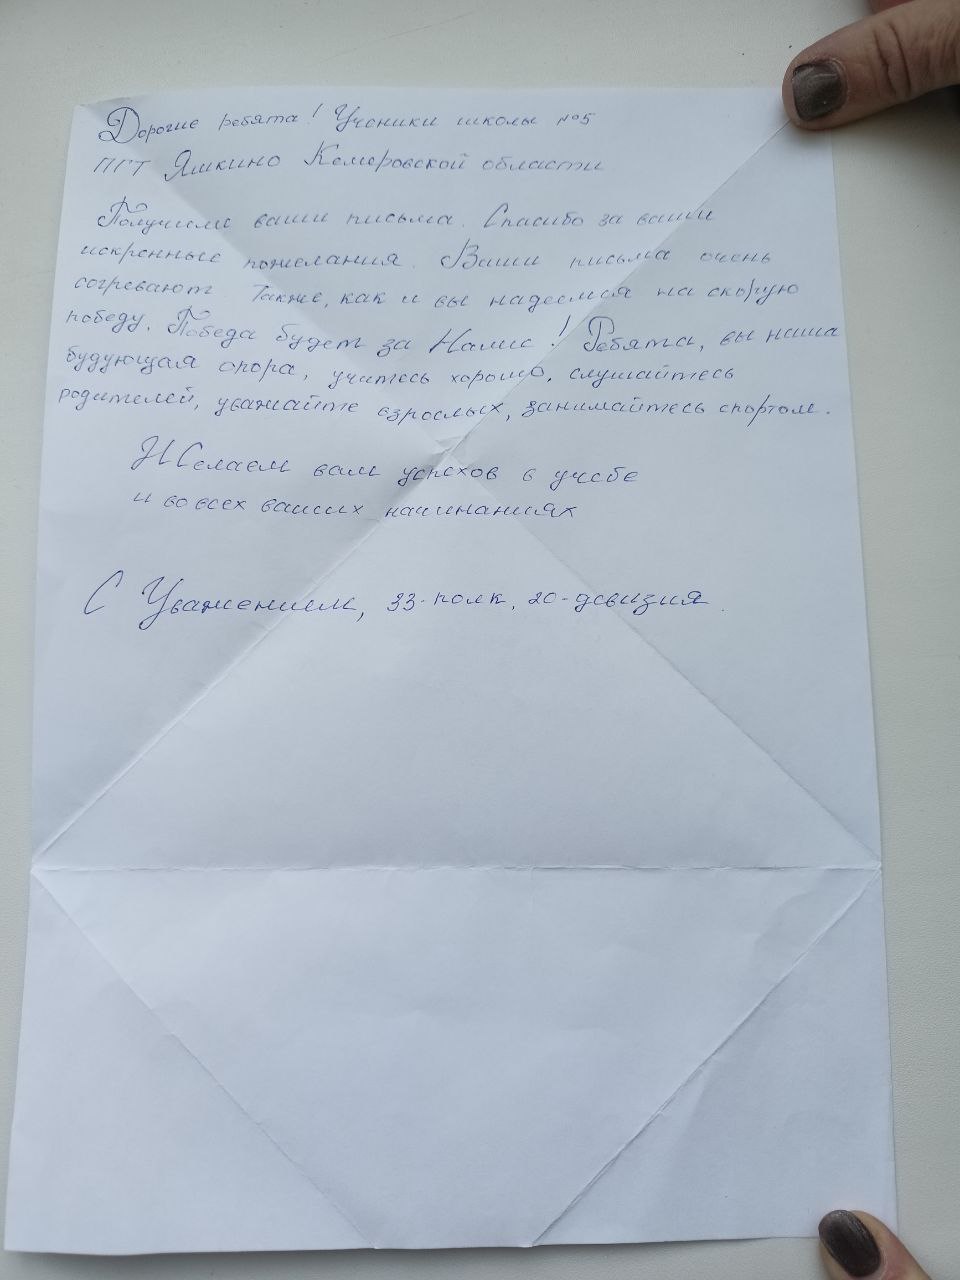 Дорогие ребята! Ученики школы №5
ПГТ Яшкино Кемеровской области
Получили ваши письма. Спасибо за ваши
искренные пожелания. Ваши письма очень
согревают. Также, как и вы надеемся на скорую
победу. Победа будет за Нами! Ребята, вы наша
будующая опора, учитесь хорошо, слушайтесь
родителей, уважайте взрослых, занимайтесь спортом.
Желаем вам успехов в учебе
и во всех ваших начинаниях
С Уважением, 33-полк, 20-дивизия.